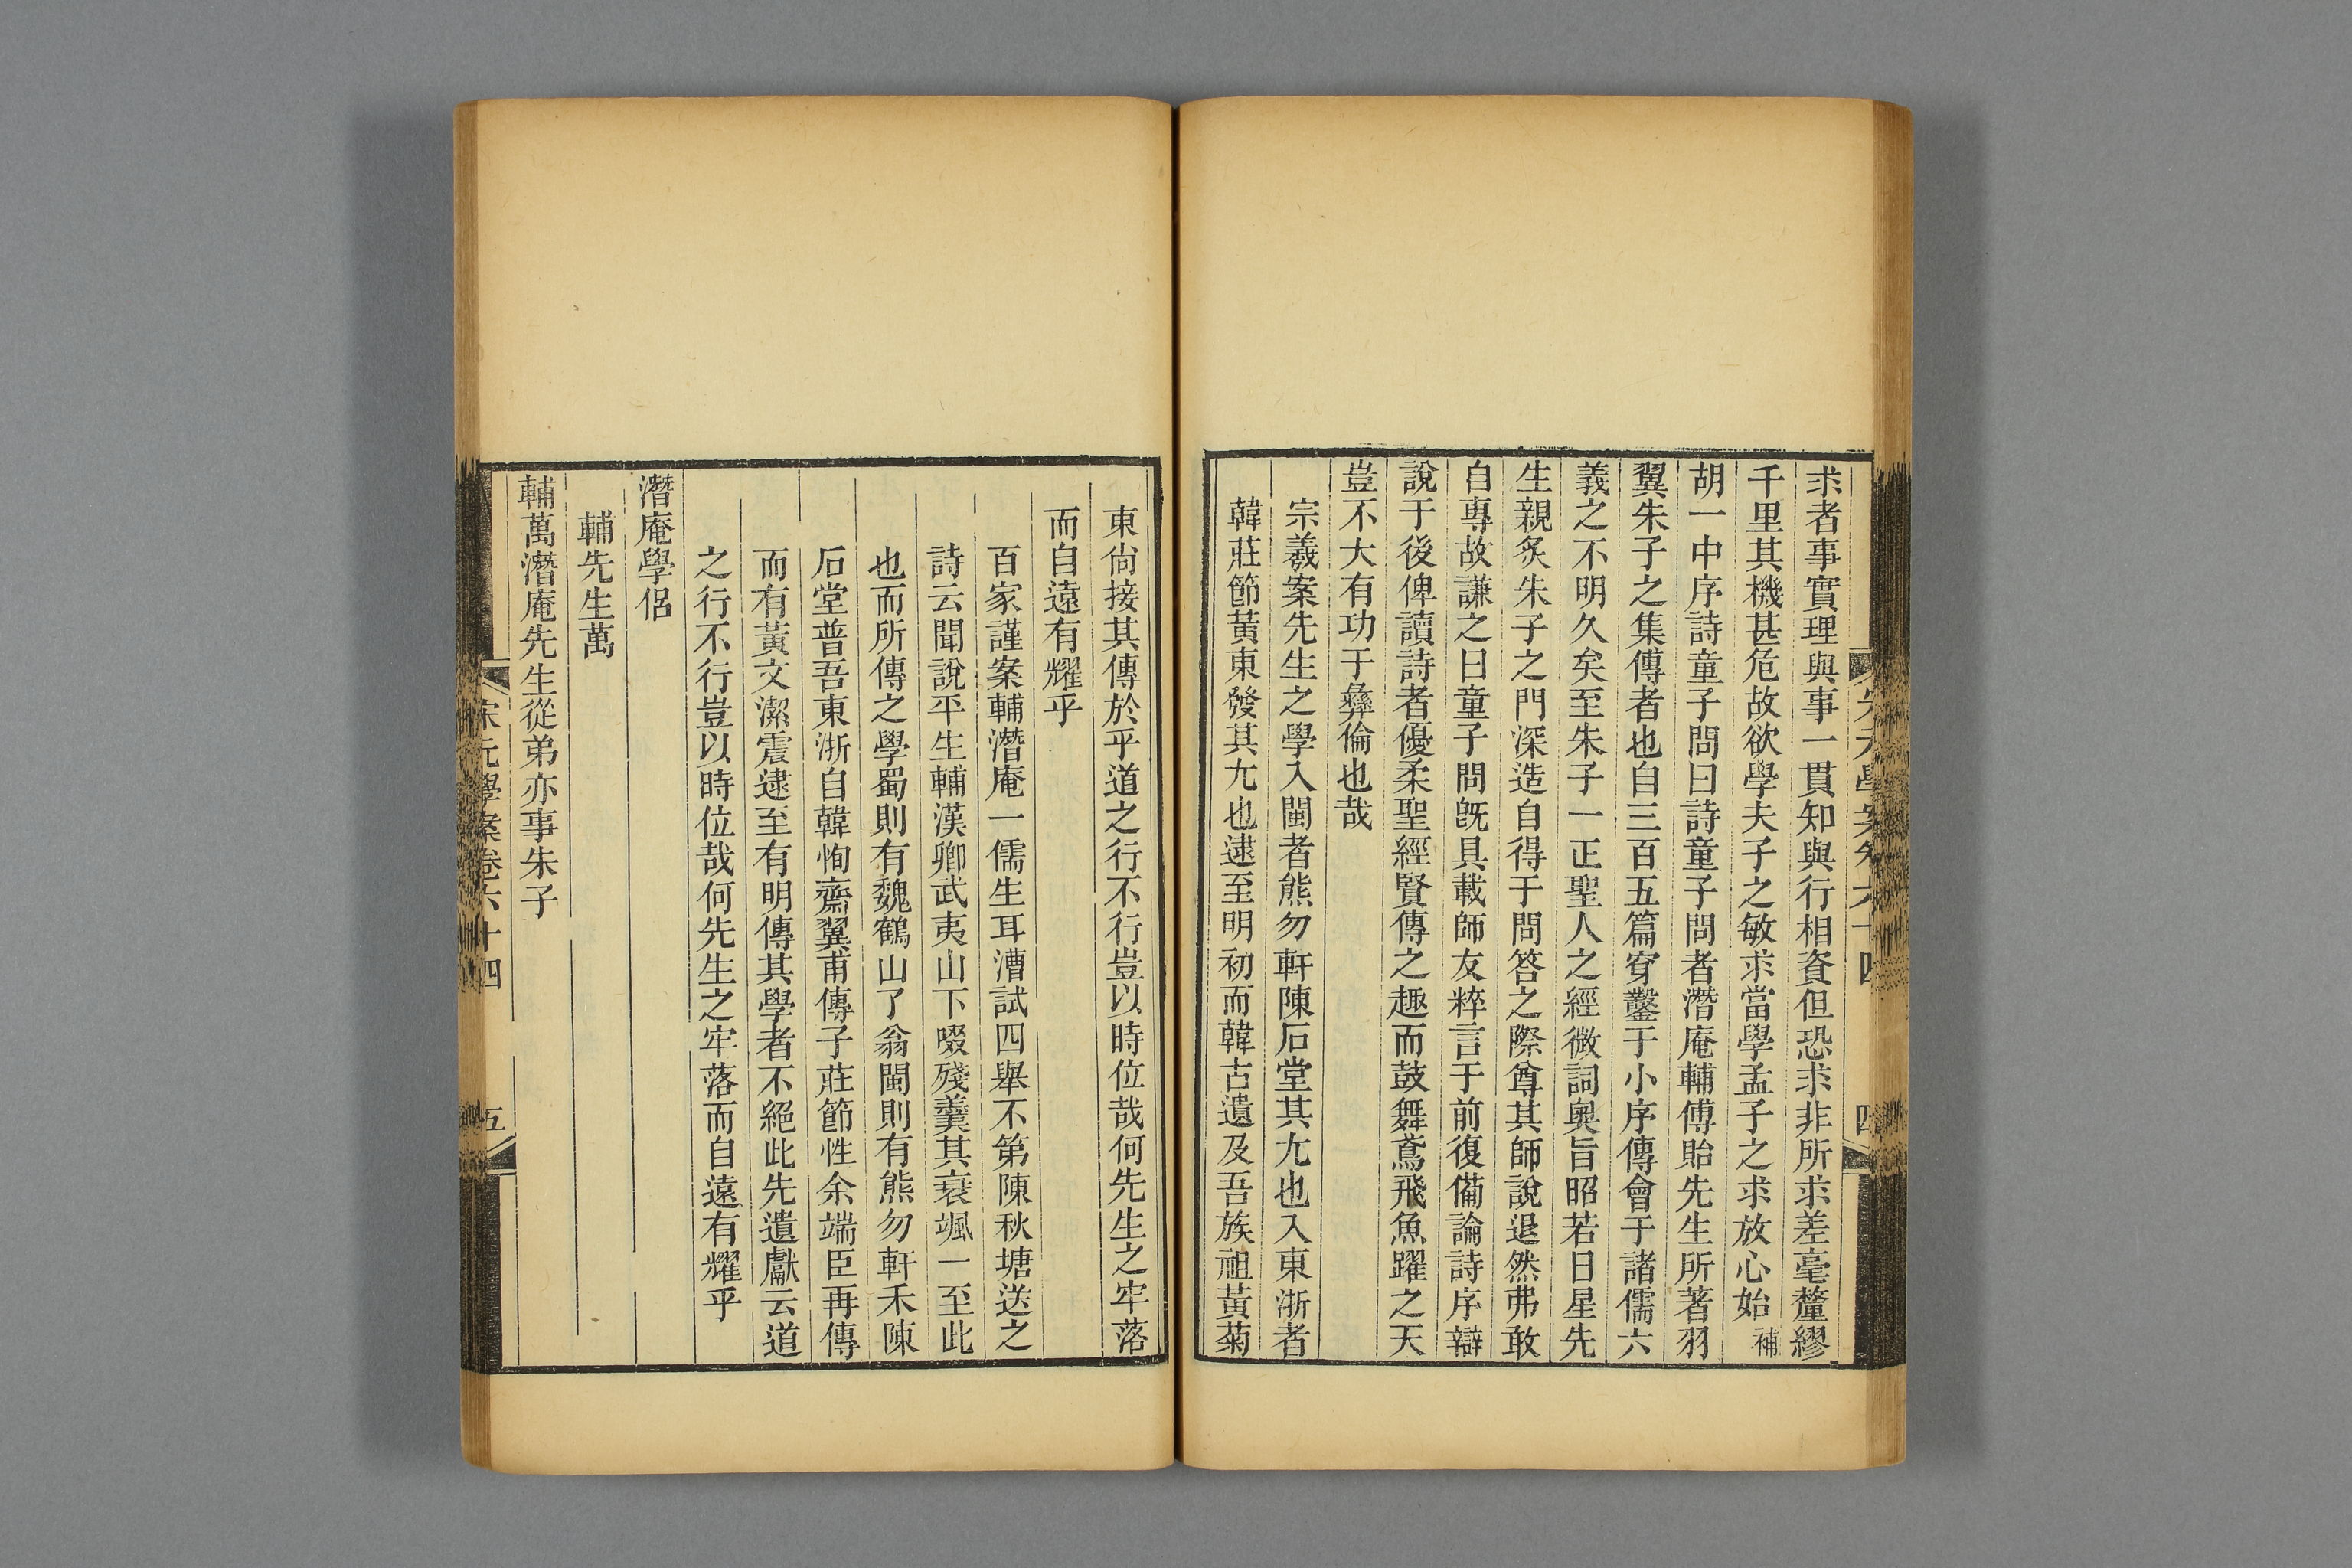 求者事實理與事一貫知與行相資但恐求非所求差毫釐繆
千里其機甚危故欲學夫子之敏求當學孟子之求放心始補
胡一中序詩童子問曰詩童子問者潛庵輔傅貽先生所著羽
翼朱子之集傳者也自三百五篇穿鑿于小序傳會于諸儒六
義之不明久矣至朱子一正聖人之經微詞奧旨昭若日星先
生親炙朱子之門深造自得于問答之際尊其師說退然弗敢
自專故謙之曰童子問旣具載師友粹言于前復備論詩序辯
說于後俾讀詩者優柔聖經賢傳之趣而鼓舞鳶飛魚躍之天
豈不大有功于彝倫也哉
宗羲案先生之學入閩者熊勿軒陳石堂其尤也入東浙者
韓莊節黃東發其尤也逮至明初而韓古遺及吾族祖黃菊
宋元學案卷六十四
四
東尙接其傳於乎道之行不行豈以時位哉何先生之牢落
而自遠有耀乎
百家謹案輔潛庵一儒生耳漕試四舉不第陳秋塘送之
詩云聞說平生輔漢卿武夷山下啜殘羹其衰颯一至此
也而所傳之學蜀則有魏鶴山了翁閩則有熊勿軒禾陳
石堂普吾東浙自韓恂齋翼甫傳子莊節性余端臣再傳
而有黃文潔震逮至有明傳其學者不絕此先遺獻云道
之行不行豈以時位哉何先生之牢落而自遠有耀乎
潛庵學侶
輔先生萬
輔萬潛庵先生從弟亦事朱子
宋元學案卷六十四
五